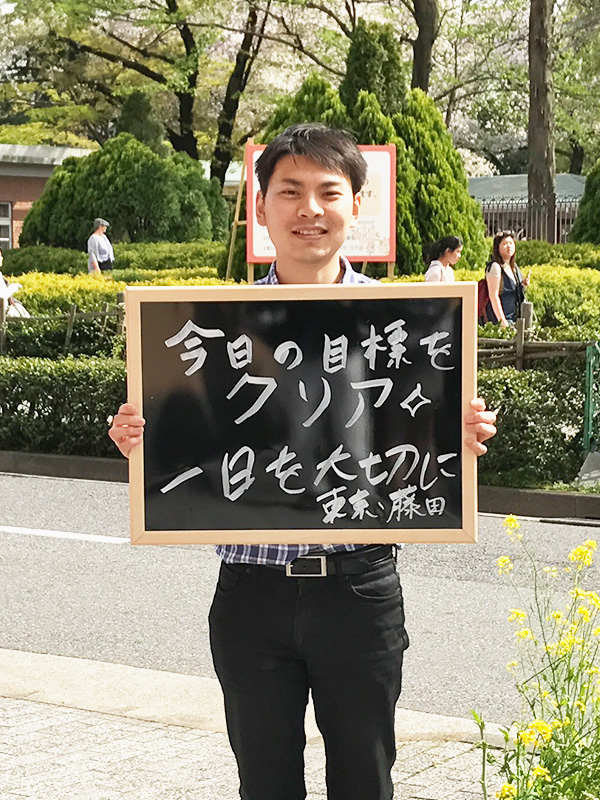 今日の目標を
クリア✧
一日を大切に
東京、藤田